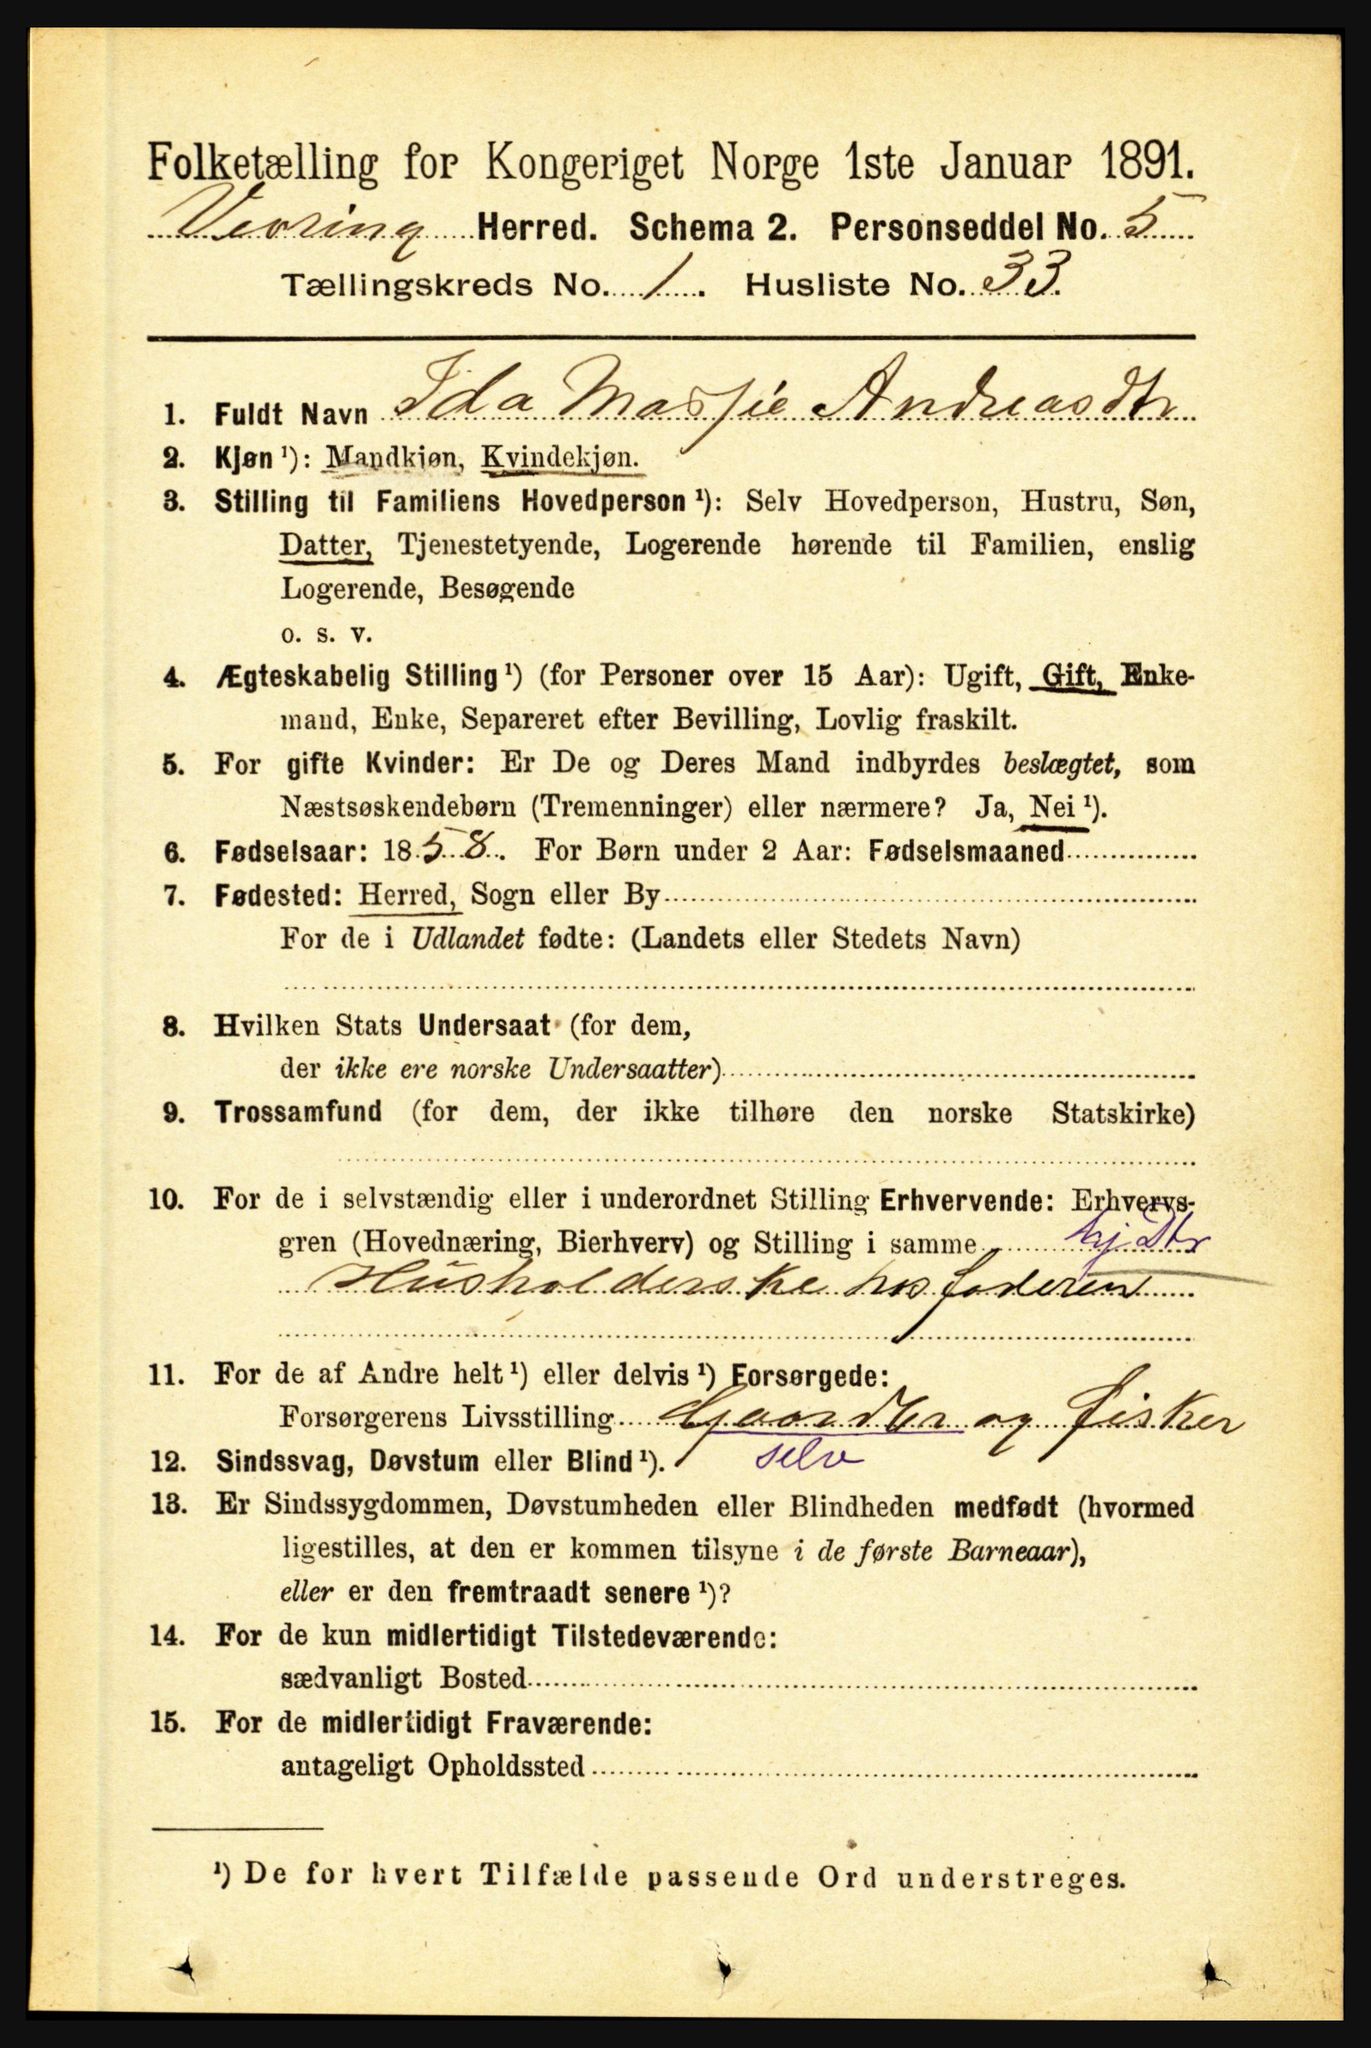 Folketælling for Kongeriget Norge 1ste Januar 1891.
Vevring Herred. Schema 2. Personseddel No. 5
Tællingskreds No. 1. Husliste No. 33.
1. Fuldt Navn Ida Massie Andreasdtr
2. Kjøn ¹): Mandkjøn, Kvindekjøn.
3. Stilling til Familiens Hovedperson ¹): Selv Hovedperson, Hustru, Søn,
Datter, Tjenestetyende, Logerende hørende til Familien, enslig
Logerende, Besøgende
o. s. v.
4. Ægteskabelig Stilling ¹) (for Personer over 15 Aar): Ugift, Gift, Enke-
mand, Enke, Separeret efter Bevilling, Lovlig fraskilt.
5. For gifte Kvinder: Er De og Deres Mand indbyrdes beslægtet, som
Næstsøskendebørn (Tremenninger) eller nærmere? Ja, Nei ¹).
6. Fødselsaar: 1858. For Børn under 2 Aar: Fødselsmaaned
7. Fødested: Herred, Sogn eller By
For de i Udlandet fødte: (Landets eller Stedets Navn)
8. Hvilken Stats Undersaat (for dem,
der ikke ere norske Undersaatter)
9. Trossamfund (for dem, der ikke tilhøre den norske Statskirke)
10. For de i selvstændig eller i underordnet Stilling Erhvervende: Erhvervs-
gren (Hovednæring, Bierhverv) og Stilling i samme hj Dtr
Husholderske hos faderen
11. For de af Andre helt ¹) eller delvis ¹) Forsørgede:
Forsørgerens Livsstilling Gaardbr og fisker
selv
12. Sindssvag, Døvstum eller Blind ¹).
13. Er Sindssygdommen, Døvstumheden eller Blindheden medfødt (hvormed
ligestilles, at den er kommen tilsyne i de første Barneaar),
eller er den fremtraadt senere ¹)?
14. For de kun midlertidigt Tilstedeværende:
sædvanligt Bosted
15. For de midlertidigt Fraværende:
antageligt Opholdssted
¹) De for hvert Tilfælde passende Ord understreges.